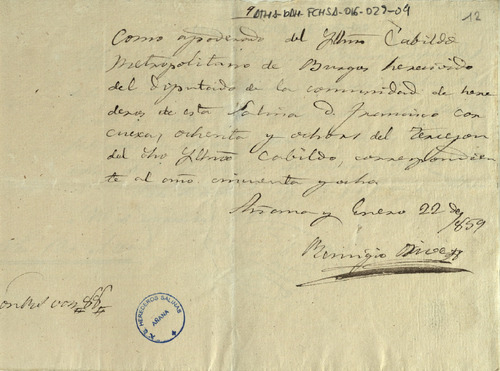 ATHA-DAH-FCHSA-016-029-04
12
Como apoderado del Yltmo Cabildo
Metropolitano de Burgos he recivido
del Diputado de la comunidad de here
deros de esta Salina D. Francisco
ochenta y ocho rs del
del dho Yltmo Cabildo, correspondien
te al año cincuenta y ocho
Añana y Enero 22 de
1859
Remigio
Son Rs von 88
HEREDEROS SALINAS
AÑANA